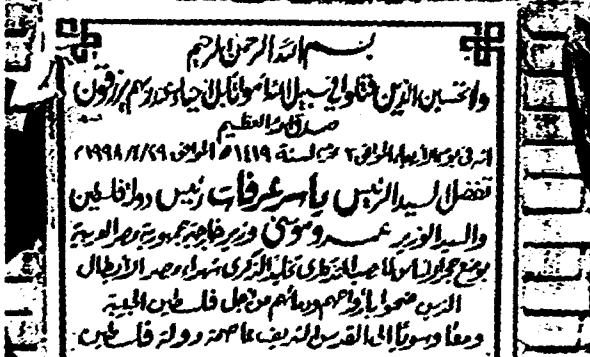 بسم الله الرحمن الرحيم
ولا تحسبن الذين قتلوا في سبيل الله أمواتا بل أحياء عند ربهم يرزقون
صدق الله العظيم
انه في يوم الأربعاء الموافق ٢ محرم لسنة ١٤١٩ ه الموافق ١٩٩٨/٤/٢٩
تفضل السيد الرئيس ياسر عرفات رئيس دولة فلسطين
والسيد الوزير عمرو موسى وزير خارجية جمهورية مصر العربية
بوضع حجر الأساس للنصب التذكاري تخليدا لذكرى شهداء مصر الأبطال
الذين ضحوا بأرواحهم ودمائهم من أجل فلسطين الحبيبة
ومعا وسويا الى القدس الشريف عاصمة دولة فلسطين